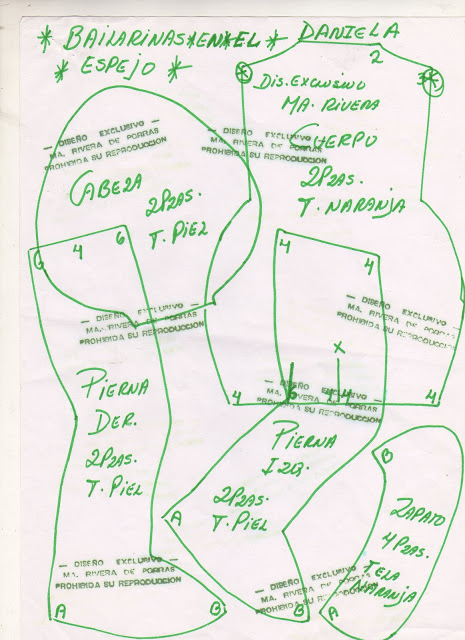 * BAILARINAS*EN*EL* DANIELA
* ESPEJO *
2
3
DIS. EXCLUSIVO
MA. RIVERA
— DISEÑO EXCLUSIVO —
MA. RIVERA DE PORRAS
PROHIBIDA SU REPRODUCCION
— DISEÑO EXCLUSIVO —
MA. RIVERA DE PORRAS
PROHIBIDA SU REPRODUCCION
CUERPO
CABEZA
2 PZAS.
T. PIEL
2 PZAS.
T. NARANJA
6
4
6
4
4
— DISEÑO EXCLUSIVO —
MA. RIVERA DE PORRAS
PROHIBIDA SU REPRODUCCION
— DISEÑO EXCLUSIVO —
MA. RIVERA DE PORRAS
PROHIBIDA SU REPRODUCCION
X
4
6
4
4
— DISEÑO EXCLUSIVO —
MA. RIVERA DE PORRAS
PROHIBIDA SU REPRODUCCION
PIERNA
DER.
2 PZAS.
T. PIEL
PIERNA
IZQ.
2 PZAS.
T. PIEL
A
B
ZAPATO
4 PZAS.
TELA
NARANJA
— DISEÑO EXCLUSIVO —
MA. RIVERA DE PORRAS
PROHIBIDA SU REPRODUCCION
— DISEÑO EXCLUSIVO —
MA. RIVERA DE PORRAS
PROHIBIDA SU REPRODUCCION
A
B
B
A